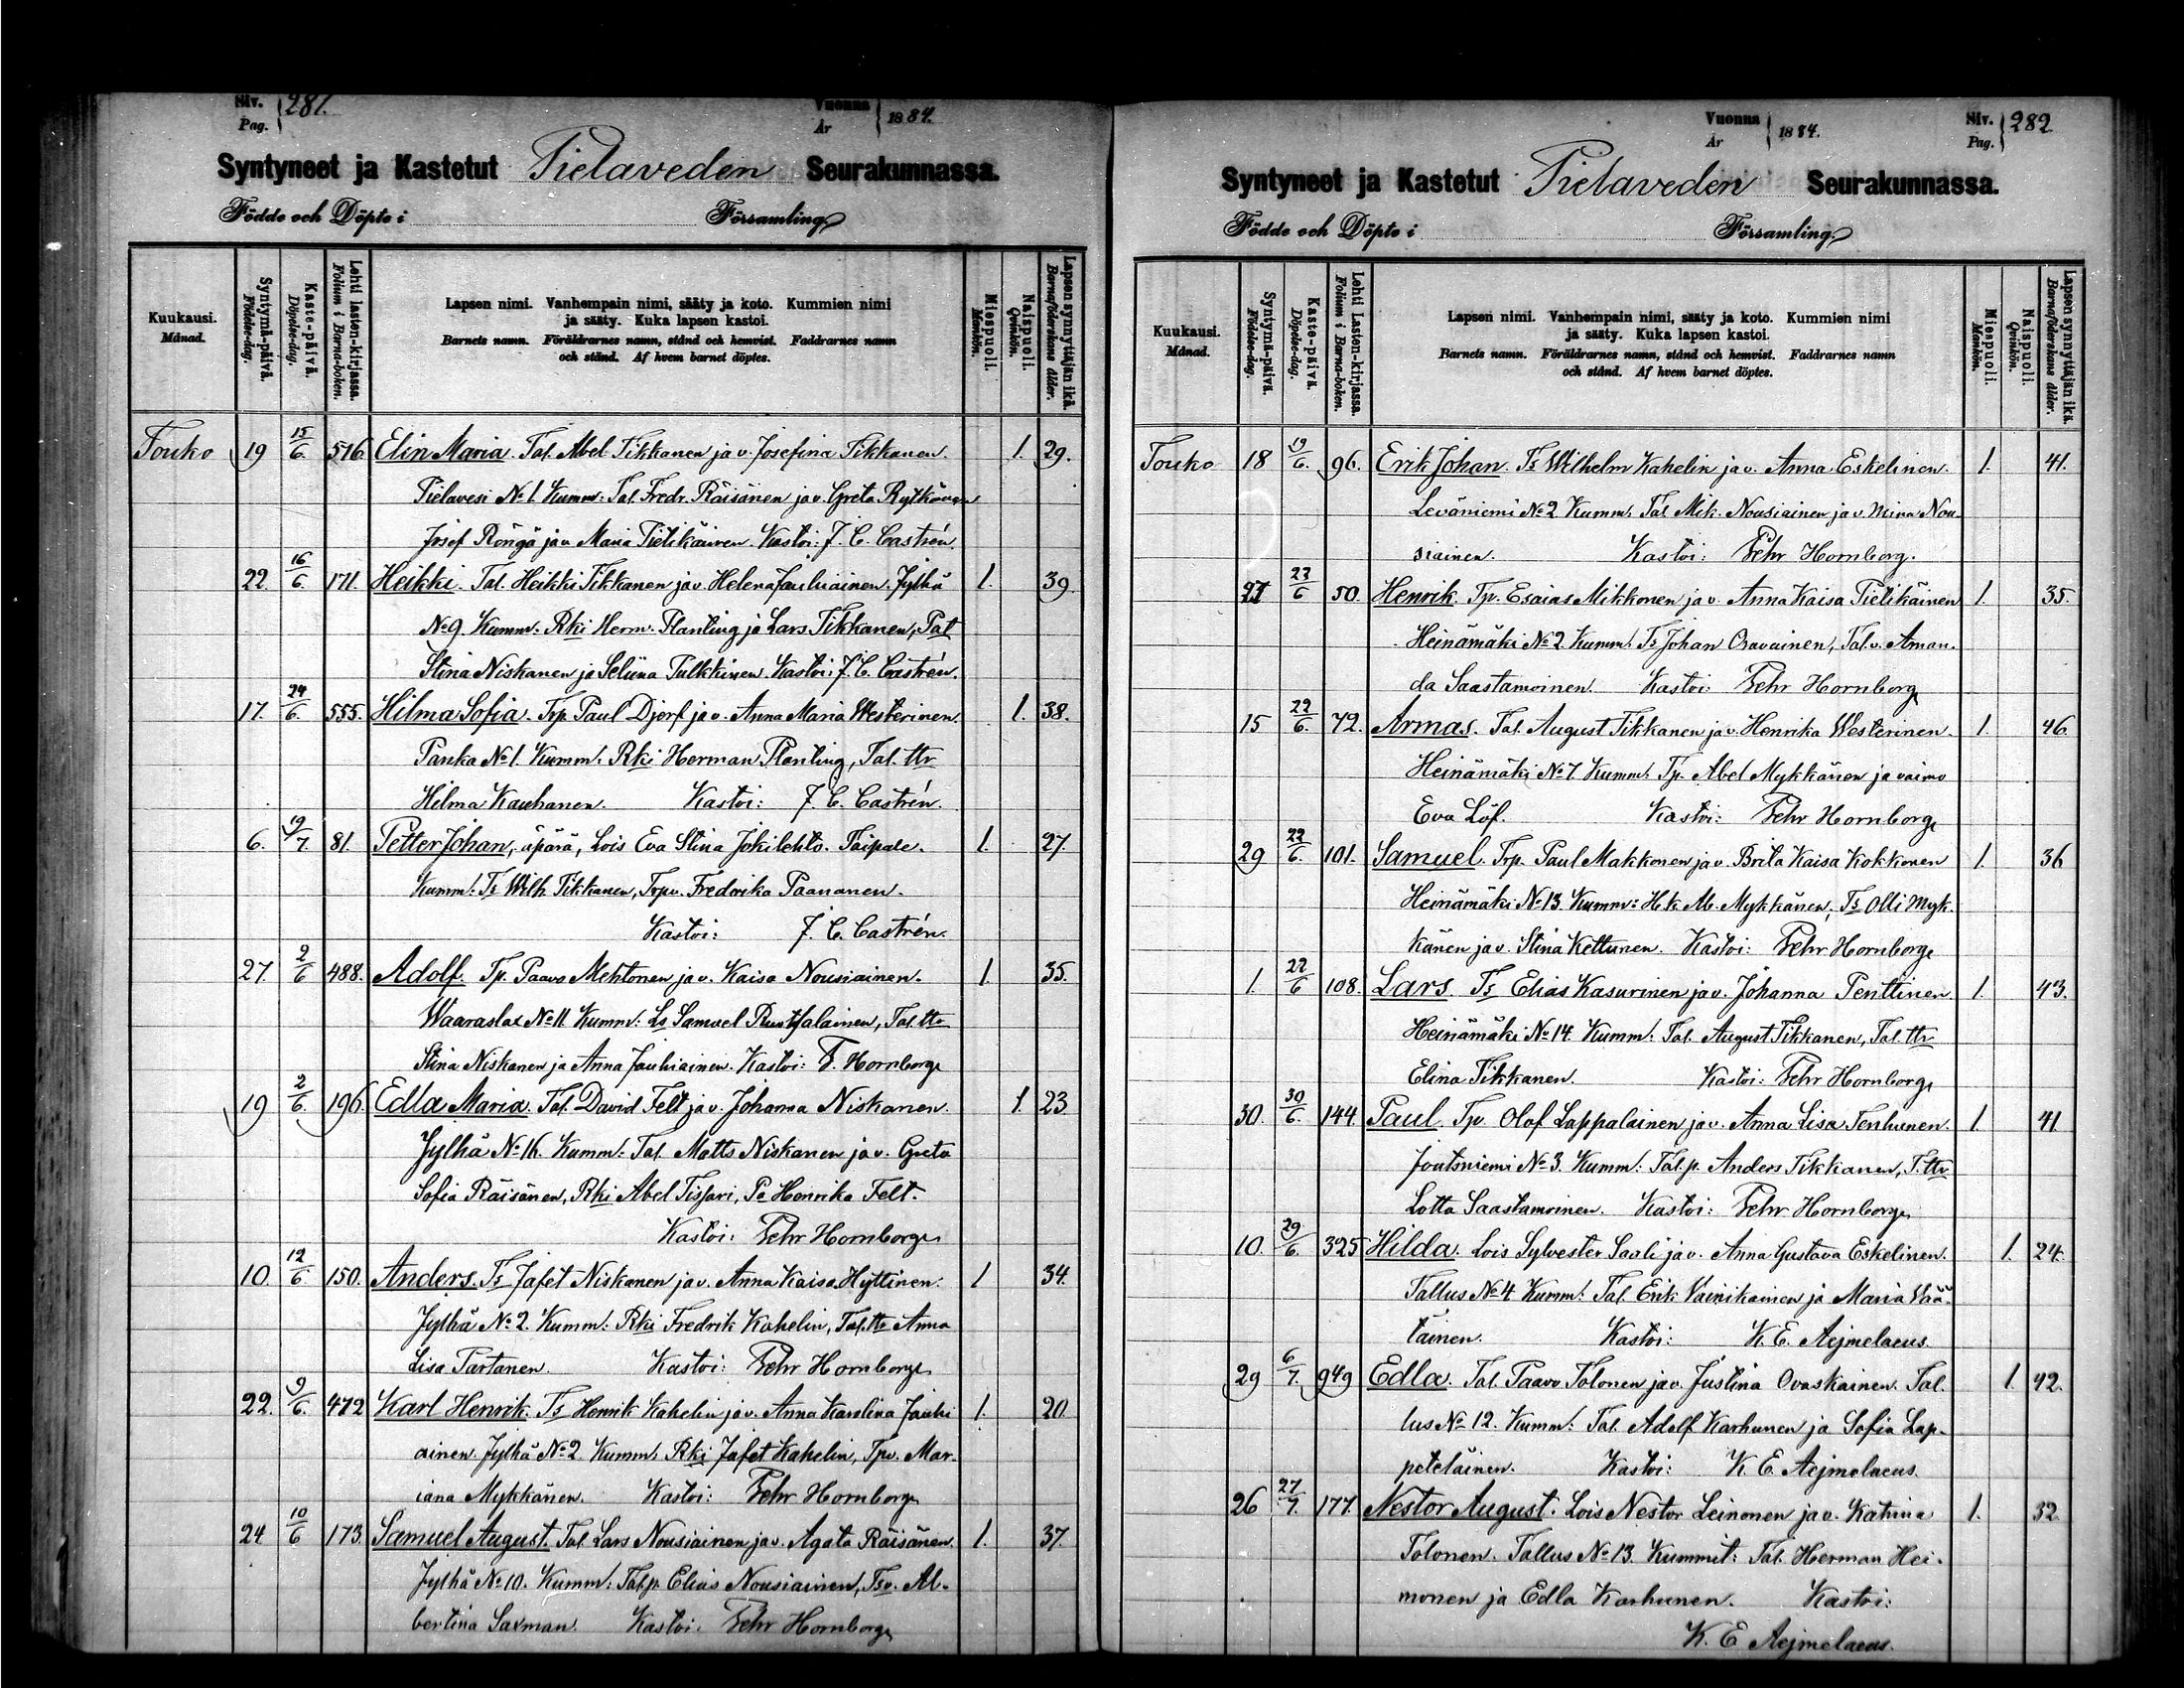 Siv. Pag. 281.
Vuonna År 1884.
Syntyneet ja Kastetut Pielaveden Seurakunnassa.
Födde och Döpte i Församling
Kuukausi. Månad.
Syntymä-päivä. Födelse-dag.
Kaste-päivä. Döpelse-dag.
Lehti lasten-kirjassa. Folium i Barna-boken.
Lapsen nimi. Vanhempain nimi, sääty ja koto. Kummien nimi
ja sääty. Kuka lapsen kastoi.
Barnets namn. Föräldrarnes namn, stånd och hemvist. Faddrarnes namn
och stånd. Af hvem barnet döptes.
Miespuoli. Mankön.
Naispuoli. Qvinkön.
Lapsen synnyttäjän ikä. Barnaföderskans ålder.
Touko 19 15/6. 516 Elin Maria. Tal. Abel Tikkanen ja v. Josefina Tikkanen. 1. 29.
Pielavesi No 1. Kumm: Tal. Fredr. Räisänen ja v. Greta Rytkönen
Josef Röngö ja v. Maria Tietikäinen. Kastoi: J. C. Castrén.
22. 16/6. 171. Heikki. Tal. Heikki Tikkanen ja v. Helena Jauhiainen. Jylhä 1. 39.
No 9. Kumm. Rki Herm. Planting ja Lars Tikkanen, Pat
Stina Niskanen ja Seliina Pulkkinen. Kastoi: J. C. Castrén.
17. 24/6. 555. Hilma Sofia. Trp. Paul Djerf ja v. Anna Maria Westerinen. 1. 38.
Panka No 1. Kumm. Rki Herman Planting, Tal. ttr
Hilma Kauhanen. Kastoi: J. C. Castrén.
6. 19/7. 81. Petter Johan, äpärä, Lois Eva Stina Jokilehto. Taipale. 1. 27.
Kumm: Ts Wilh. Tikkanen, Trpv. Fredrika Paananen.
Kastoi: J. C. Castrén.
27. 2/6 488. Adolf. Tp. Paavo Mehtonen ja v. Kaisa Nousiainen. 1. 35.
Waaraslax No 11. Kumm: Ls Samuel Ruotsalainen, Tal. ttr
Stina Niskanen ja Anna Jauhiainen. Kastoi: F. Hornborg
19 2/6. 196 Edla Maria. Tal. David Felt ja v. Johanna Niskanen. 1. 23
Jylhä No 16. Kumm: Tal. Matts Niskanen ja v. Greta
Sofia Räisänen, Rki Abel Tissari, Pa Henrika Felt.
Kastoi: Fehr Hornborg
10. 12/6. 150. Anders. Ts Jafet Niskanen ja v. Anna Kaisa Hyttinen. 1 34.
Jylhä No 2. Kumm: Rki Fredrik Kahelin, Tal. ttr Anna
Lisa Tartanen. Kastoi: Fehr Hornborg
22. 9/6. 472 Karl Henrik. Ts Henrik Kahelin ja v. Anna Karolina Jauhi 1. 20.
ainen. Jylhä No 2. Kumm. Rki Jafet Kahelin, Tpv. Mar-
iana Mykkänen. Kastoi: Fehr Hornborg
24 10/6 173. Samuel August. Tal. Lars Nousiainen ja v. Agata Räisänen. 1. 37.
Jylhä No 10. Kumm: Tal.p. Elias Nousiainen, Tsv. Al-
bertina Saxman. Kastoi: Fehr Hornborg
Vuonna År 1884.
Siv. Pag. 282
Syntyneet ja Kastetut Pielaveden Seurakunnassa.
Födde och Döpte i Församling
Kuukausi. Månad.
Syntymä-päivä. Födelse-dag.
Kaste-päivä. Döpelse-dag.
Lehti Lasten-kirjassa. Folium i Barna-boken.
Lapsen nimi. Vanhempain nimi, sääty ja koto. Kummien nimi
ja sääty. Kuka lapsen kastoi.
Barnets namn. Föräldrarnes namn, stånd och hemvist. Faddrarnes namn
och stånd. Af hvem barnet döptes.
Miespuoli. Mankön.
Naispuoli. Qvinkön.
Lapsen synnyttäjän ikä. Barnaföderskans ålder.
Touko 18 19/6. 96. Erik Johan. Ts Wilhelm Kahelin ja v. Anna Eskelinen. 1. 41.
Leväniemi No 2. Kumm. Tal. Mik. Nousiainen ja v. Mina Nou-
siainen. Kastoi: Fehr Hornborg.
27 23/6 50. Henrik. Tp. Esaias Mikkonen ja v. Anna Kaisa Tietikäinen 1. 35.
Heinämäki No 2. Kumm: Ts Johan Oravainen, Tal.v. Aman-
da Saastamoinen. Kastoi Fehr Hornborg
15 22/6. 72. Armas. Tal. August Tikkanen ja v. Henrika Westerinen. 1. 46.
Heinämäki No 7. Kumm: Tp. Abel Mykkänen ja vaimo
Eva Löf. Kastoi: Fehr Hornborg
29 22/6. 101. Samuel. Trp. Paul Makkonen ja v. Brita Kaisa Kokkonen 1. 36
Heinämäki No 13. Kumm: H.k. M. Mykkänen, Ts Olli Myk-
känen ja v. Stina Kettunen. Kastoi: Fehr Hornborg
1. 22/6 108. Lars. Ts Elias Kasurinen ja v. Johanna Penttinen. 1. 43.
Heinämäki No 14. Kumm: Tal. August Tikkanen, Tal. ttr
Elina Tikkanen. Kastoi: Fehr Hornborg
30. 30/6. 144. Paul. Tp. Olof Lappalainen ja v. Anna Lisa Tenhunen. 1. 41.
Joutsniemi No 3. Kumm: Tal.p. Anders Tikkanen, T. ttr
Lotta Saastamoinen. Kastoi: Fehr Hornborg
10. 29/6. 325 Hilda. Lois Sylvester Saali ja v. Anna Gustava Eskelinen. 1. 24.
Tallus No 4 Kumm: Tal. Erik Vainikainen ja Maria Vää-
täinen. Kastoi: K. E. Aejmelaeus.
29 6/7. 949 Edla. Tal. Paavo Tolonen ja v. Justina Ovaskainen. Tal- 1. 42.
lus No 12. Kumm: Tal. Adolf Karhunen ja Sofia Lap-
peteläinen. Kastoi: K. E. Aejmelaeus.
26 27/7. 177. Nestor August. Lois Nestor Leinonen ja v. Katrina 1. 32.
Tolonen. Tallus No 13. Kummit: Tal. Herman Hei-
monen ja Edla Karhunen. Kastoi:
K. E Aejmelaeus.